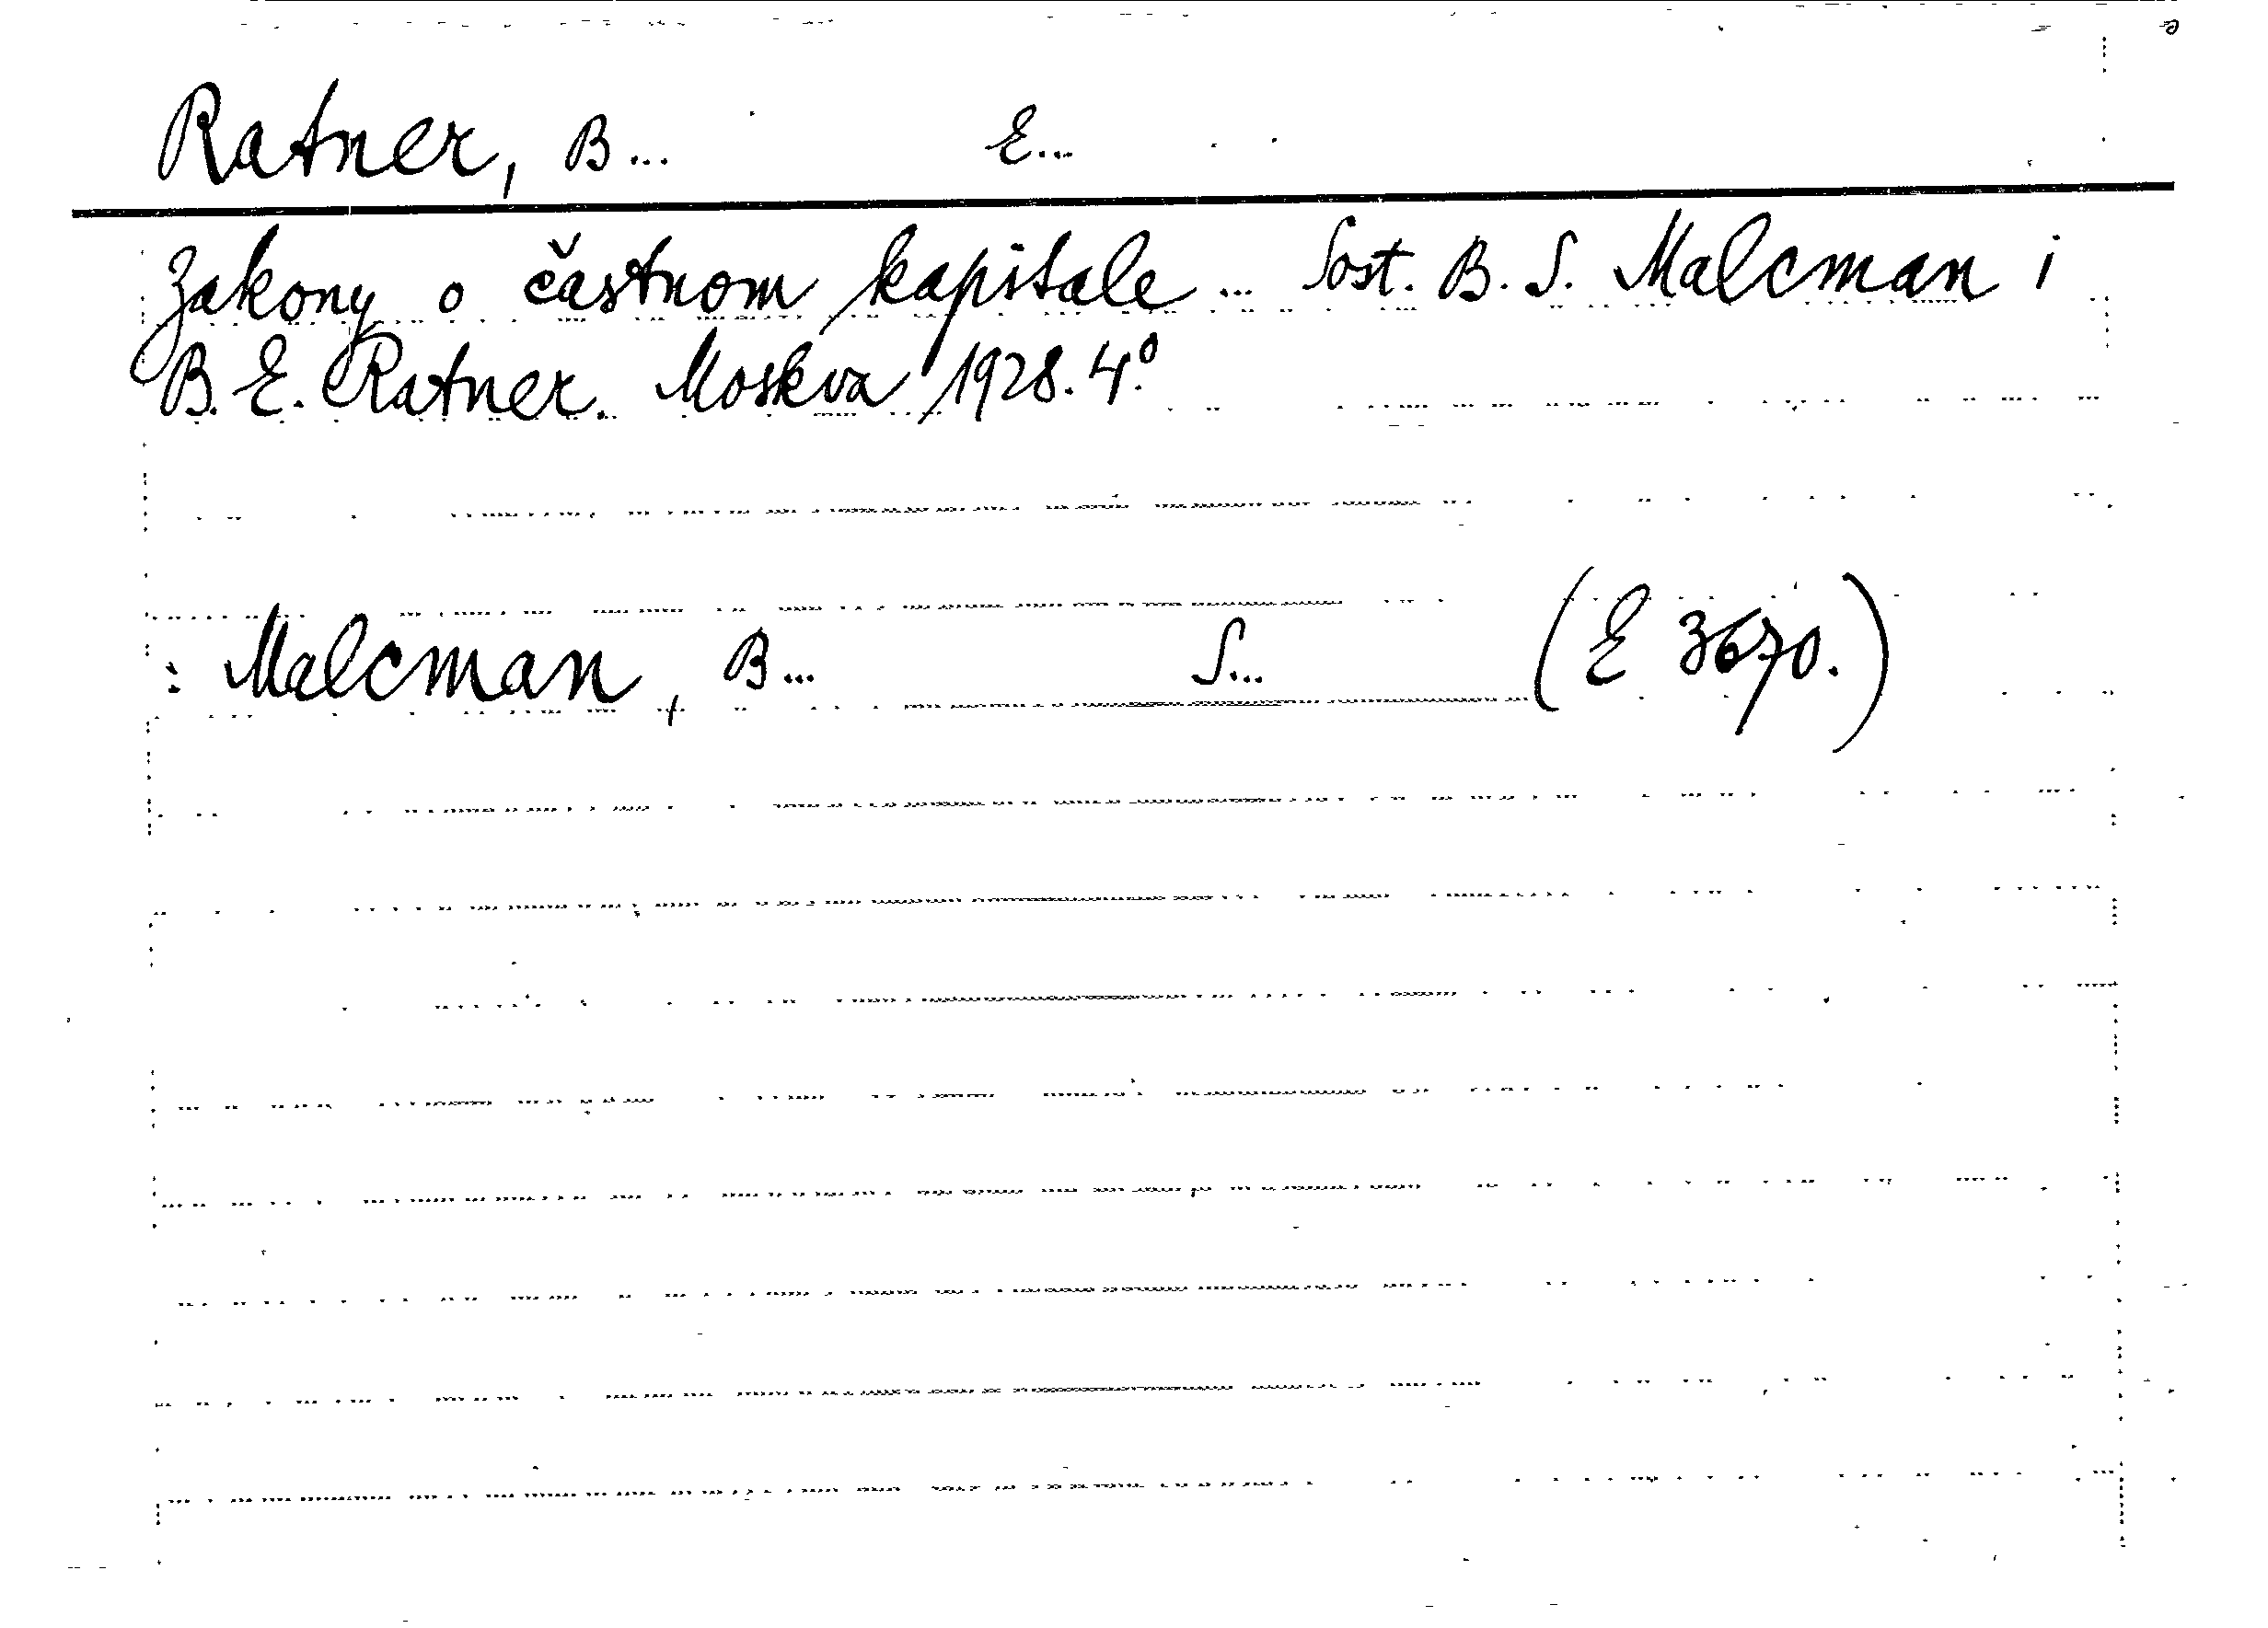 Ratner, B... E...
Zakony o častnom kapitale ... Sost. B. S. Malcman i
B. E. Ratner. Moskva 1928. 4.°
: Malcman, B... S... (E 3670.)